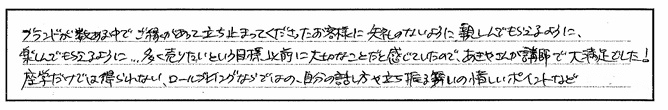 ブランドが数ある中でご縁があって立ち止まってくださったお客様に失礼のないように、親しんでもらえるように、
楽しんでもらえるように...多く売りたいという目標以前に大切なことだと感じていたので、あきやさんが講師で大満足でした!
座学だけでは得られない、ロールプレイングならではの、自分の話し方や立ち振る舞いの惜しいポイントなど